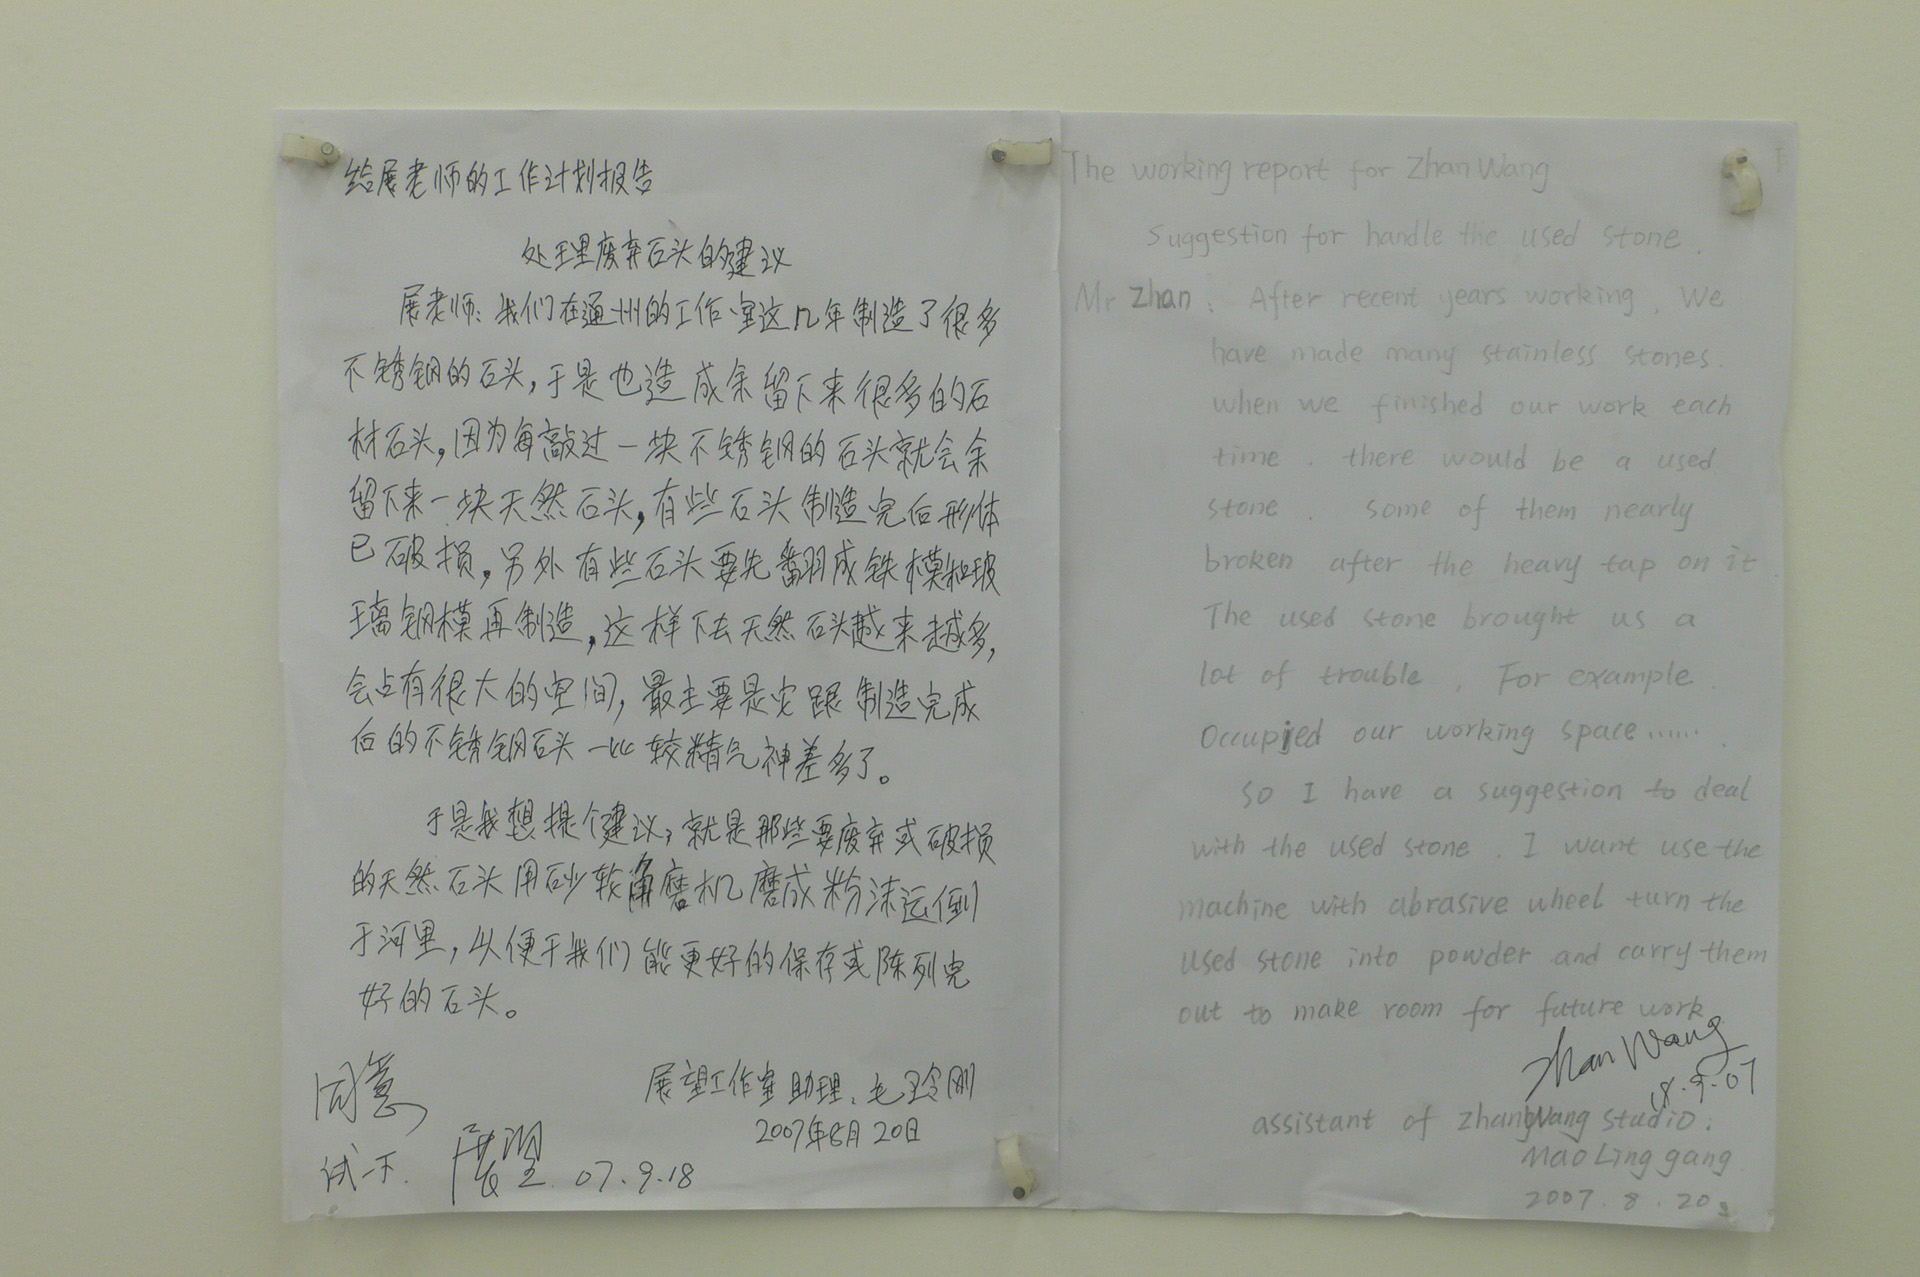 给展老师的工作计划报告
处理废弃石头的建议
展老师：我们在通州的工作室这几年制造了很多
不锈钢的石头，于是也造成余留下来很多的石
材石头，因为每敲过一块不锈钢的石头就会余
留下来一块天然石头，有些石头制造完后形体
已破损，另外有些石头要先翻成铁模和玻
璃钢模再制造，这样下去天然石头越来越多，
会占有很大的空间，最主要是它跟制造完成
后的不锈钢石头一比较精气神差多了。
于是我想提个建议，就是那些要废弃或破损
的天然石头用砂轮角磨机磨成粉沫运倒
于河里，以便于我们能更好的保存或陈列完
好的石头。
展望工作室助理：毛玲刚
2007年8月20日
同意
试一下.
展望 07.9.18
The working report for Zhan Wang
Suggestion for handle the used stone.
Mr Zhan: After recent years working, We
have made many stainless stones.
when we finished our work each
time. there would be a used
stone. some of them nearly
broken after the heavy tap on it.
The used stone brought us a
lot of trouble. For example
occupied our working space......
So I have a suggestion to deal
with the used stone. I want use the
machine with abrasive wheel turn the
used stone into powder and carry them
out to make room for future work
Zhan Wang
18.9.07
assistant of Zhang Wang studio:
Mao Ling gang
2007.8.20